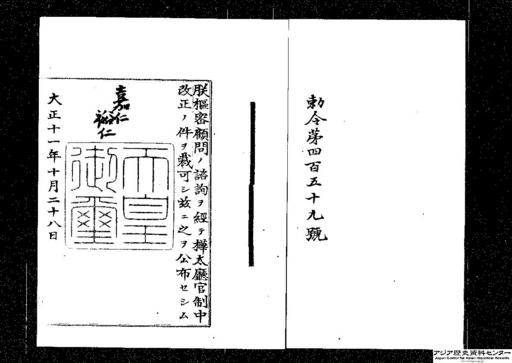 勅令第四百五十九號
朕樞密顧問ノ諮詢ヲ經テ樺太廳官制中
改正ノ件ヲ裁可シ玆ニ之ヲ公布セシム
嘉仁
裕仁
天皇
御璽
大正十一年十月二十八日
アジア歴史資料センター
Japan Center for Asian Historical Records